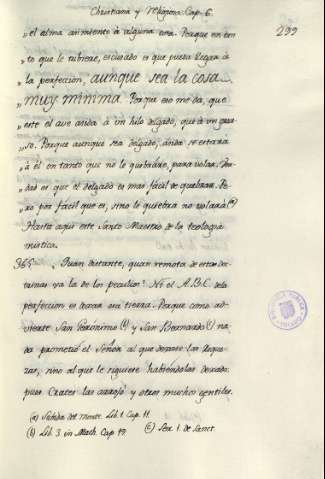 Christiana y Religiosa Cap. 6.
299
„ el alma asimiento à alguna cosa. Porque en tan
„ to que le tubiere, escusado es que pueda llegar à
„ la perfeccion, aunque sea la cosa
muy minima. Porque eso me da, que
„ este el ave asida à un hilo delgado, que à un grue
„ so. Porque aunque sea delgado, asida se estará
„ à él en tanto que no le quebrare, para volar. Ver-
„ dad es que el delgado es mas facil de quebrar. Pe-
„ ro por facil que es, sino le quiebra no volará (a)
Hasta aqui este Santo Maestro de la teologia
mistica.
365. Quan distante, quan remota de estos dic-
tamenes ya la de los peculios! No el A.B.C. de la
perfeccion es dexar esa tierra. Porque como ad-
vierte San Geronimo (b) y San Bernardo (c) na-
da prometió el Señor al que dexase las rique-
zas, sino al que le siguiere habiendolas dexado;
pues Crates las arrojó y otros muchos gentiles.
(a) Subida del Monte. Lib. 1. Cap. 11.
(b) Lib. 3 in Math. Cap. 19. (c) Ser. 1. de Sanct.